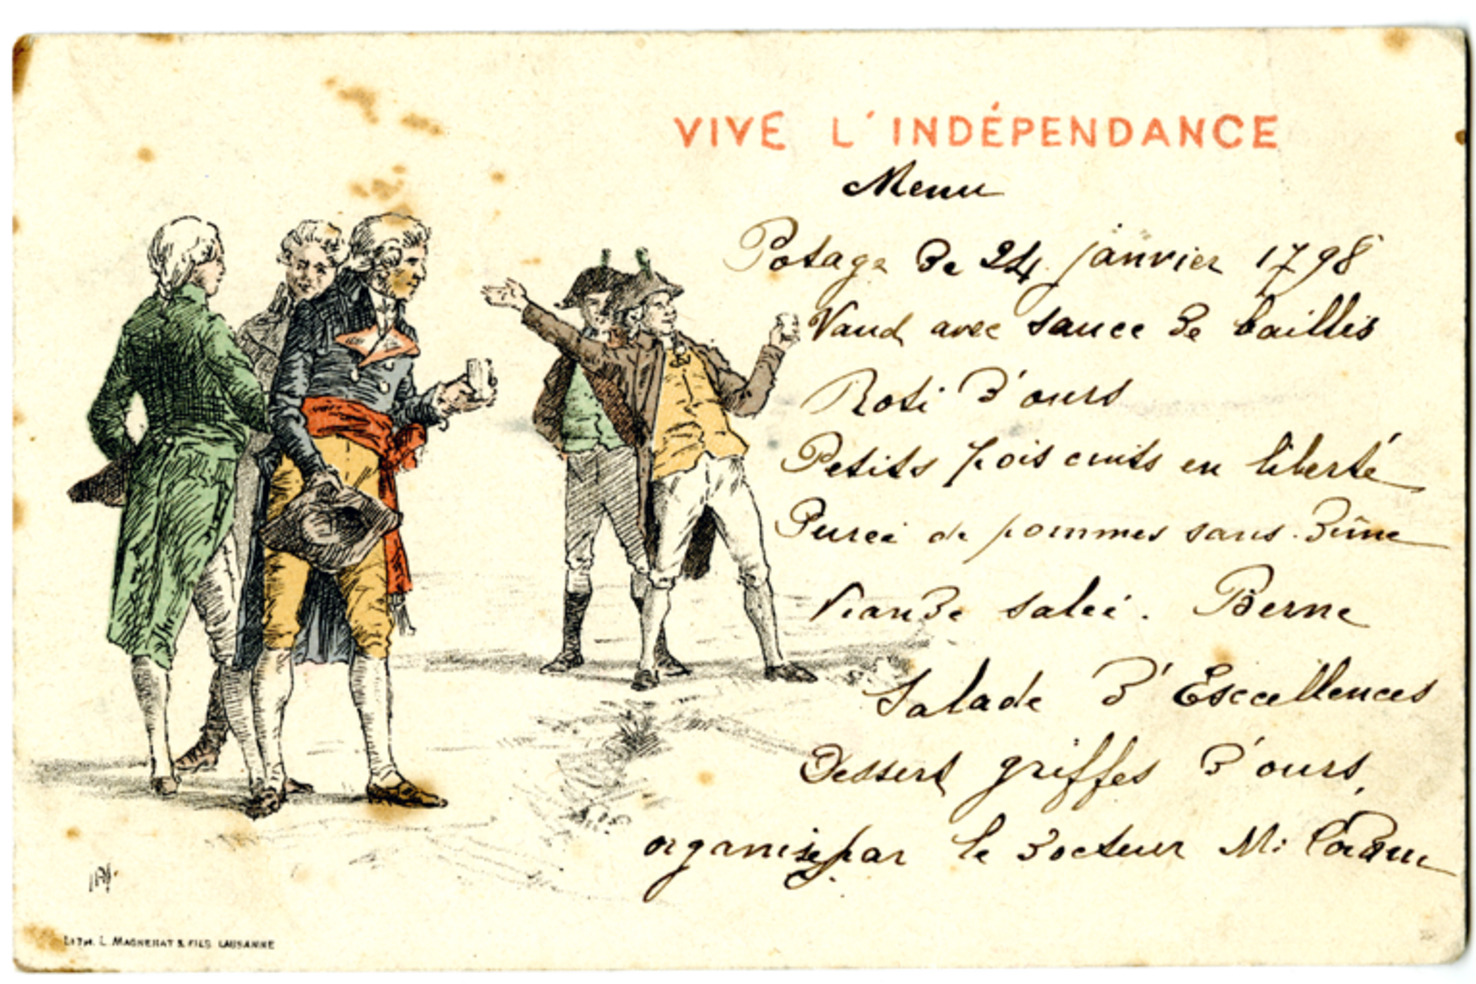 VIVE L'INDÉPENDANCE
Menu
Potage de 24 janvier 1798
Vaud avec sauce de baillis
Roti d'ours
Petits pois cuits en liberté
Pureé de pommes sans dîme
Viande saleé. Berne
Salade d'Esccellences
Dessert griffes d'ours,
organisé par le docteur Mr
LITH. L. MAGNENAT & FILS LAUSANNE